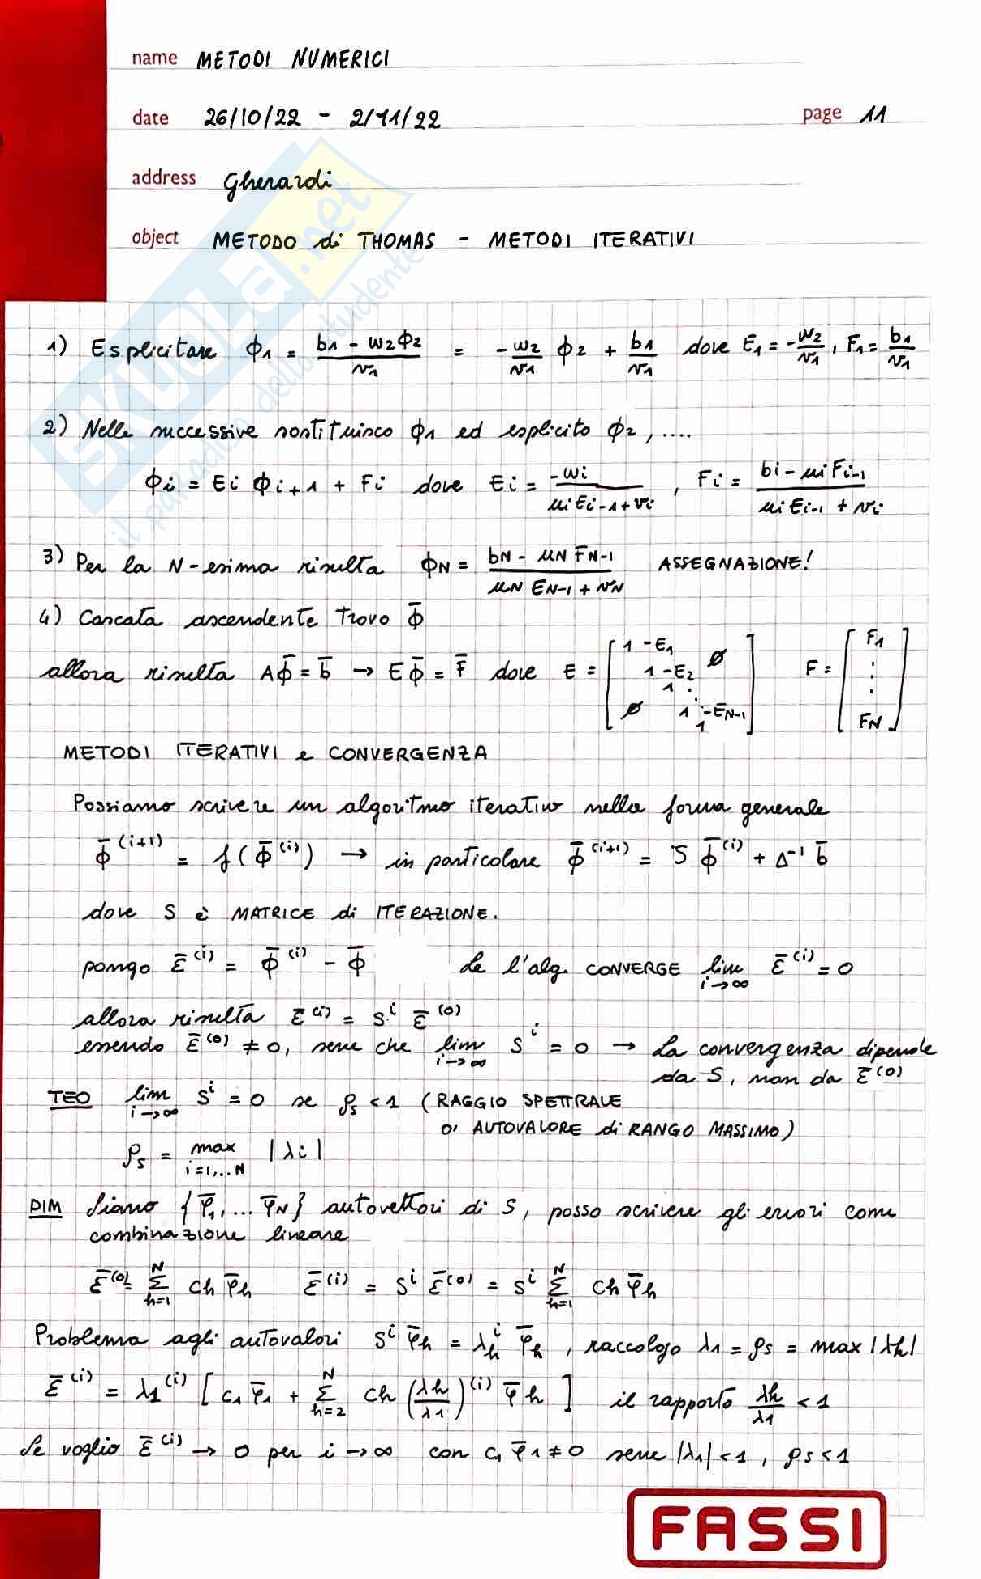 name METODI NUMERICI
date 26/10/22 - 2/11/22 page 11
address Gherardi
object METODO di THOMAS - METODI ITERATIVI
SKUOLA.net
il paradiso dello studente
1) Esplicitare ϕ1 = (b1 - w2ϕ2)/v1 = -w2/v1 ϕ2 + b1/v1 dove E1 = -w2/v1, F1 = b1/v1
2) Nelle successive sostituisco ϕ1 ed esplicito ϕ2, ....
ϕi = Ei ϕi+1 + Fi dove Ei = -wi/(ui Ei-1 + vi), Fi = (bi - ui Fi-1)/(ui Ei-1 + vi)
3) Per la N-esima risulta ϕN = (bN - uN FN-1)/(uN EN-1 + vN) ASSEGNAZIONE!
4) Cascata ascendente trovo ϕ̄
allora risulta Aϕ̄ = b̄ → Eϕ̄ = F̄ dove E = [1 -E1 ∅ 1 -E2 1 ⋱ ∅ 1 -EN-1 1] F = [F1 ⋮ FN]
METODI ITERATIVI e CONVERGENZA
Possiamo scrivere un algoritmo iterativo nella forma generale
ϕ̄^(i+1) = f(ϕ̄^(i)) → in particolare ϕ̄^(i+1) = S ϕ̄^(i) + Δ^-1 b̄
dove S è MATRICE di ITERAZIONE.
pongo ε̄^(i) = ϕ̄^(i) - ϕ̄ Se l'alg. CONVERGE lim i→∞ ε̄^(i) = 0
allora risulta ε̄^(i) = S^i ε̄^(0)
essendo ε̄^(0) ≠ 0, serve che lim i→∞ S^i = 0 → La convergenza dipende
da S, non da ε̄^(0)
TEO lim i→∞ S^i = 0 se ρs < 1 (RAGGIO SPETTRALE
O' AUTOVALORE di RANGO MASSIMO)
ρs = max i=1,...N |λi|
DIM Siano {φ̄1, ... φ̄N} autovettori di S, posso scrivere gli errori come
combinazione lineare
ε̄^(0) = Σ h=1 N Ch φ̄h ε̄^(i) = S^i ε̄^(0) = S^i Σ h=1 N Ch φ̄h
Problema agli autovalori S^i φ̄h = λh^i φ̄h, raccolgo λ1 = ρs = max |λh|
ε̄^(i) = λ1^(i) [c1 φ̄1 + Σ h=2 N Ch (λh/λ1)^(i) φ̄h] il rapporto λh/λ1 < 1
Se voglio ε̄^(i) → 0 per i → ∞ con c1 φ̄1 ≠ 0 serve |λ1| < 1, ρs < 1
FASSI